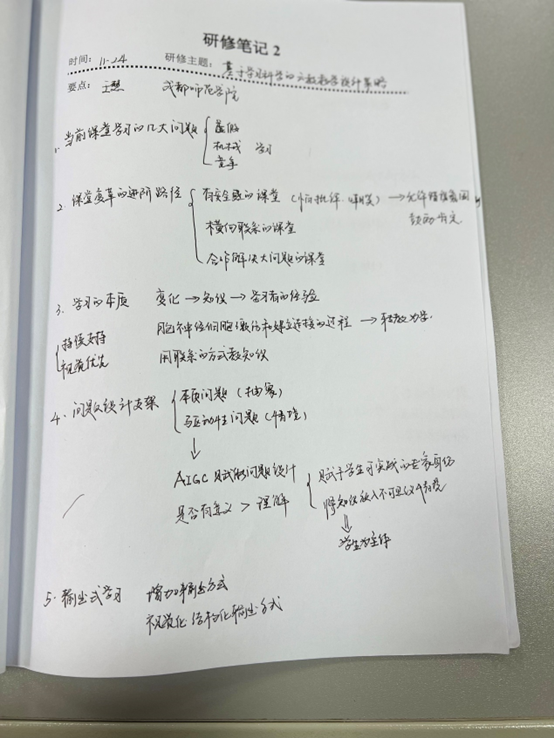 研修笔记 2
时间: 11-24 研修主题: 基于学习科学的大概念教学设计策略
要点: 王慧 成都师范学院
1. 当前课堂学习的几大问题
虚假
机械 学习
竞争
2. 课堂变革的进阶路径
有安全感的课堂 (怕批评、嘲笑) → 允许错误氛围
鼓励 肯定
横向联系的课堂
合作解决大问题的课堂
3. 学习的本质 变化 → 知识 → 学习者的经验
持续支持
视觉优先
脑神经细胞激活和建立连接的过程 →
用联系的方式教知识
4. 问题设计支架
本质问题 (抽象)
驱动性问题 (情境)
↓
AIGC 赋能问题设计
是否有意义 > 理解
赋予学生可实践的
将知识放入不可
⇓
学生为主体
5. 输出式学习 增加输出方式
视觉化 结构化输出方式